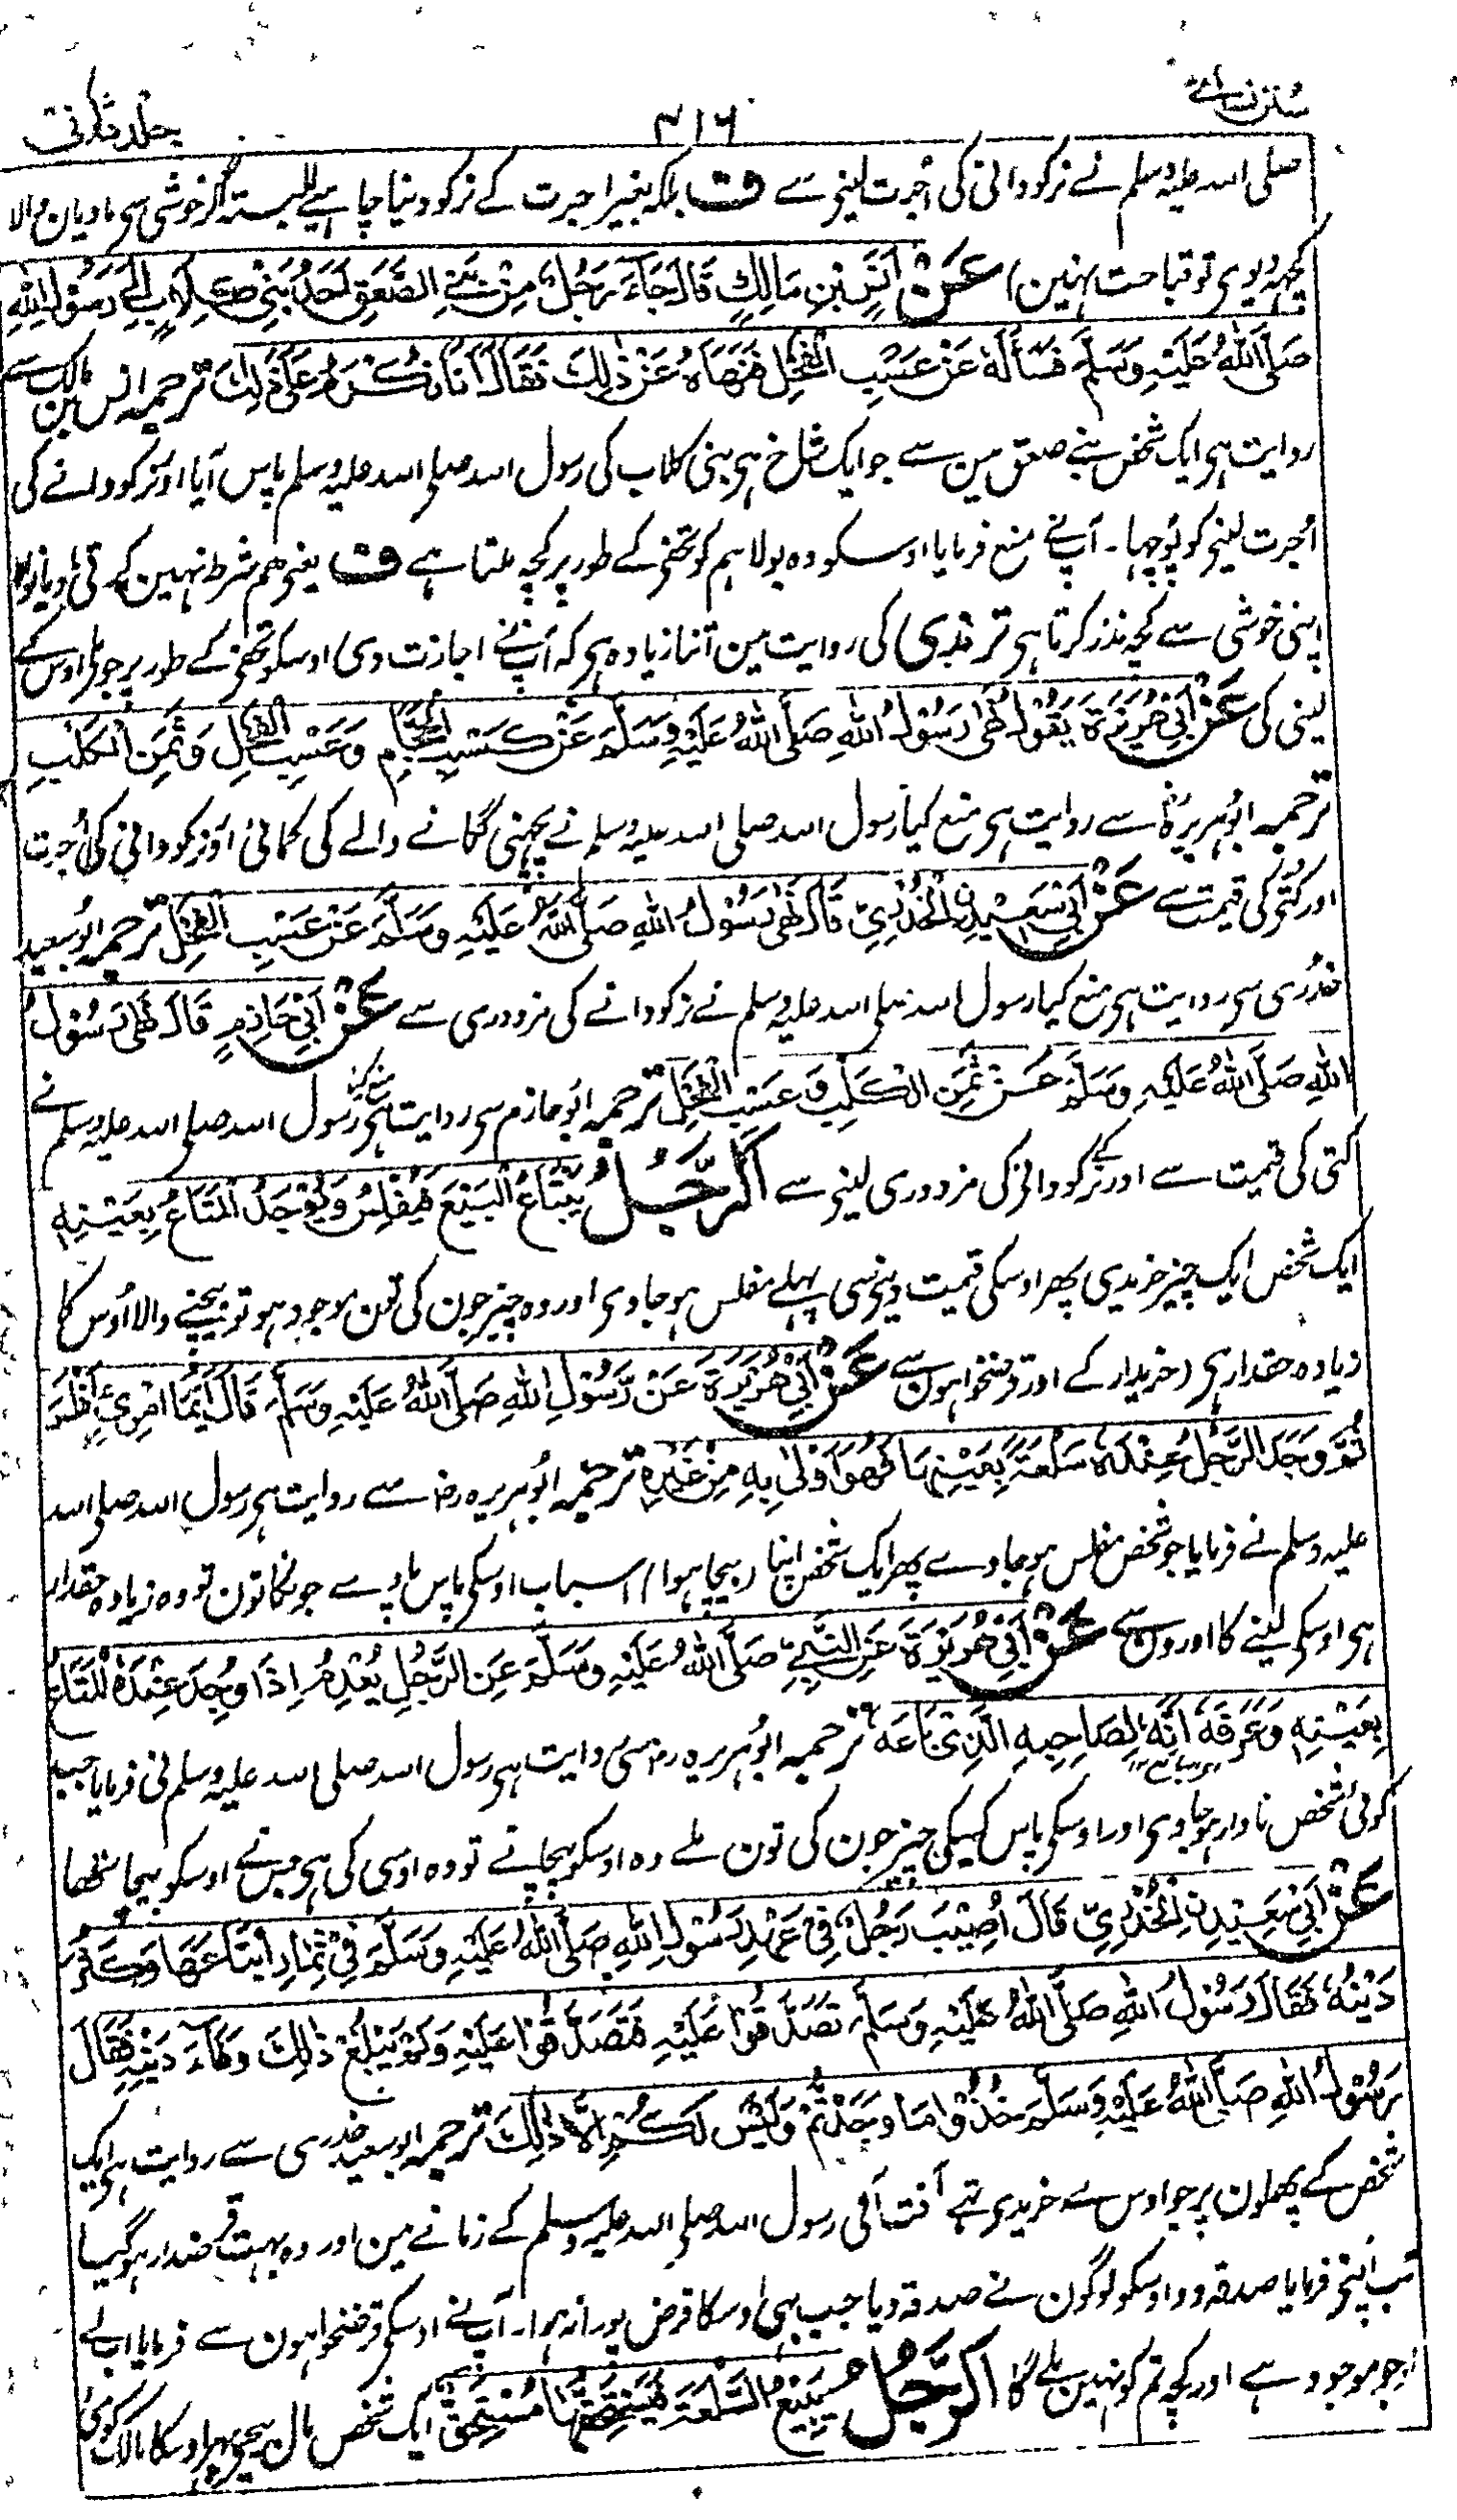 سنن نسائے
۳۱۶
جلد ثانی
صلی اللہ علیہ وسلم نے نرکودانی کی اُجرت لینی سے ف بلکہ بغیر اجرت کے نرکو دینا چاہیے البستہ اگر خوشی سی مادیان والا
کچہہ دیوی تو قباحت نہین) عَنْ اَنَسِ بْنِ مَالِكٍ قَالَ جَآءَ رَجُلٌ مِنْ بَنِي الصَّعَقِ اَحَدُ بَنِيْ كِلَابٍ اِلٰى رَسُوْلِ اللّٰهِ
صَلَّى اللّٰهُ عَلَيْهِ وَسَلَّمَ فَسَأَلَهُ عَنْ عَسْبِ الْفَحْلِ فَنَهَاهُ عَنْ ذٰلِكَ فَقَالَ اَنَا نُكْرَمُ عَلٰى ذٰلِكَ ترجمہ انس بن مالک سے
روایت ہی ایک شخص بنے صعق مین سے جو ایک شاخ ہی بنی کلاب کی رسول اللہ صلی اللہ علیہ وسلم پاس آیا اور نرکودانے کی
اُجرت لینی کو پوچہا۔ آپنے منع فرمایا اوسکو وہ بولا ہم کو تحفی کے طور پر کچہ ملتا ہے ف یعنی ہم شرط نہین کرتی مادیانوالا
اپنی خوشی سے کچہ نذر کرتا ہی ترمذی کی روایت مین اتنا زیادہ ہی کہ آپنے اجازت دی اوسکو تحفی کے طور پر جو ملی اوس کے
لینی کی عَنْ اَبِيْ هُرَيْرَةَ يَقُوْلُ نَهٰى رَسُوْلُ اللّٰهِ صَلَّى اللّٰهُ عَلَيْهِ وَسَلَّمَ عَنْ كَسْبِ الْحَجَّامِ وَعَسْبِ الْفَحْلِ وَثَمَنِ الْكَلْبِ
ترجمہ ابوہریرہؓ سے روایت ہی منع کیا رسول اللہ صلی اللہ علیہ وسلم نے پچہنی لگانے والے کی کمائی اور نرکودانی کی اُجرت
اور کتی کی قیمت سے عَنْ اَبِيْ سَعِيْدِنِ الْخُدْرِيِّ قَالَ نَهٰى رَسُوْلُ اللّٰهِ صَلَّى اللّٰهُ عَلَيْهِ وَسَلَّمَ عَنْ عَسْبِ الْفَحْلِ ترجمہ ابوسعید
خدری سی روایت ہی منع کیا رسول اللہ صلی اللہ علیہ وسلم نے نرکودانے کی مزدوری سے عَنْ اَبِيْ حَازِمٍ قَالَ نَهٰى رَسُوْلُ
اللّٰهِ صَلَّى اللّٰهُ عَلَيْهِ وَسَلَّمَ عَنْ ثَمَنِ الْكَلْبِ وَعَسْبِ الْفَحْلِ ترجمہ ابوحازم سی روایت ہی منع کیا رسول اللہ صلی اللہ علیہ وسلم نے
کتی کی قیمت سے اور نرکے کودانی کی مزدوری لینی سے اَلرَّجُلُ يَبْتَاعُ الْبَيْعَ فَيُفْلِسُ وَيُوْجَدُ الْمَتَاعُ بِعَيْنِهٖ
ایک شخص ایک چیز خریدی پھر اوسکی قیمت دینی سی پہلے مفلس ہو جاوی اور وہ چیز جون کی تون موجود ہو تو بیچنے والا اُوس کا
زیادہ حقدار ہی (خریدار کے اور قرضخواہون سے عَنْ اَبِيْ هُرَيْرَةَ عَنْ رَسُوْلِ اللّٰهِ صَلَّى اللّٰهُ عَلَيْهِ وَسَلَّمَ قَالَ اَيُّمَا امْرِئٍ اَفْلَسَ
ثُمَّ وَجَدَ الرَّجُلُ عِنْدَهٗ سِلْعَةً بِعَيْنِهَا فَهُوَ اَوْلٰى بِهٖ مِنْ غَيْرِهٖ ترجمہ ابوہریرہ رض سے روایت ہی رسول اللہ صلی اللہ
علیہ وسلم نے فرمایا جو شخص مفلس ہو جاوے پھر ایک شخص اپنا (بیچا ہوا) اسباب اوسکی پاس پاوے جونکا تون تو وہ زیادہ حقدار
ہی اوسکی لینے کا اورون سے عَنْ اَبِيْ هُرَيْرَةَ عَنِ النَّبِيِّ صَلَّى اللّٰهُ عَلَيْهِ وَسَلَّمَ عَنِ الرَّجُلِ يُعْدِمُ اِذَا وُجِدَ عِنْدَهُ الْمَتَاعُ
بِعَيْنِهٖ وَعَرَفَهٗ اَنَّهٗ لِصَاحِبِهِ الَّذِيْ بَاعَهٗ ترجمہ ابوہریرہ رض سی روایت ہی رسول اللہ صلی اللہ علیہ وسلم نی فرمایا جب
کوئی شخص نادار ہو جاوی اور اوسکی پاس کسیکی چیز جون کی تون ملے وہ اوسکو پہچانے تو وہ اوسی کی ہی جس نے اوسکو بیچا تھا
عَنْ اَبِيْ سَعِيْدِنِ الْخُدْرِيِّ قَالَ اُصِيْبَ رَجُلٌ فِيْ عَهْدِ رَسُوْلِ اللّٰهِ صَلَّى اللّٰهُ عَلَيْهِ وَسَلَّمَ فِيْ ثِمَارٍ ابْتَاعَهَا وَكَثُرَ
دَيْنُهٗ فَقَالَ رَسُوْلُ اللّٰهِ صَلَّى اللّٰهُ عَلَيْهِ وَسَلَّمَ تَصَدَّقُوْا عَلَيْهِ فَتَصَدَّقُوْا عَلَيْهِ وَلَمْ يَبْلُغْ ذٰلِكَ وَفَآءَ دَيْنِهٖ فَقَالَ
رَسُوْلُ اللّٰهِ صَلَّى اللّٰهُ عَلَيْهِ وَسَلَّمَ خُذُوْا مَا وَجَدْتُمْ وَلَيْسَ لَكُمْ اِلَّا ذٰلِكَ ترجمہ ابوسعید خدری سے روایت ہی ایک
شخص کے پھلون پر جو اوس نے خریدی تہے آفت آئی رسول اللہ صلی اللہ علیہ وسلم کے زمانے مین اور وہ بہت قرضدار ہوگیا
تب آپنی فرمایا صدقہ دو اوسکو لوگون نے صدقہ دیا جب بہی اوسکا قرض پورا نہ ہوا۔ آپنے اوسکی قرضخواہون سے فرمایا اب لے
لو جو موجود ہے اور کچہ تم کو نہین ملے گا اَلرَّجُلُ يَبِيْعُ السِّلْعَةَ فَيَسْتَحِقُّهَا مُسْتَحِقٌّ ایک شخص مال بیچی پہر اوسکا مالک کوئی